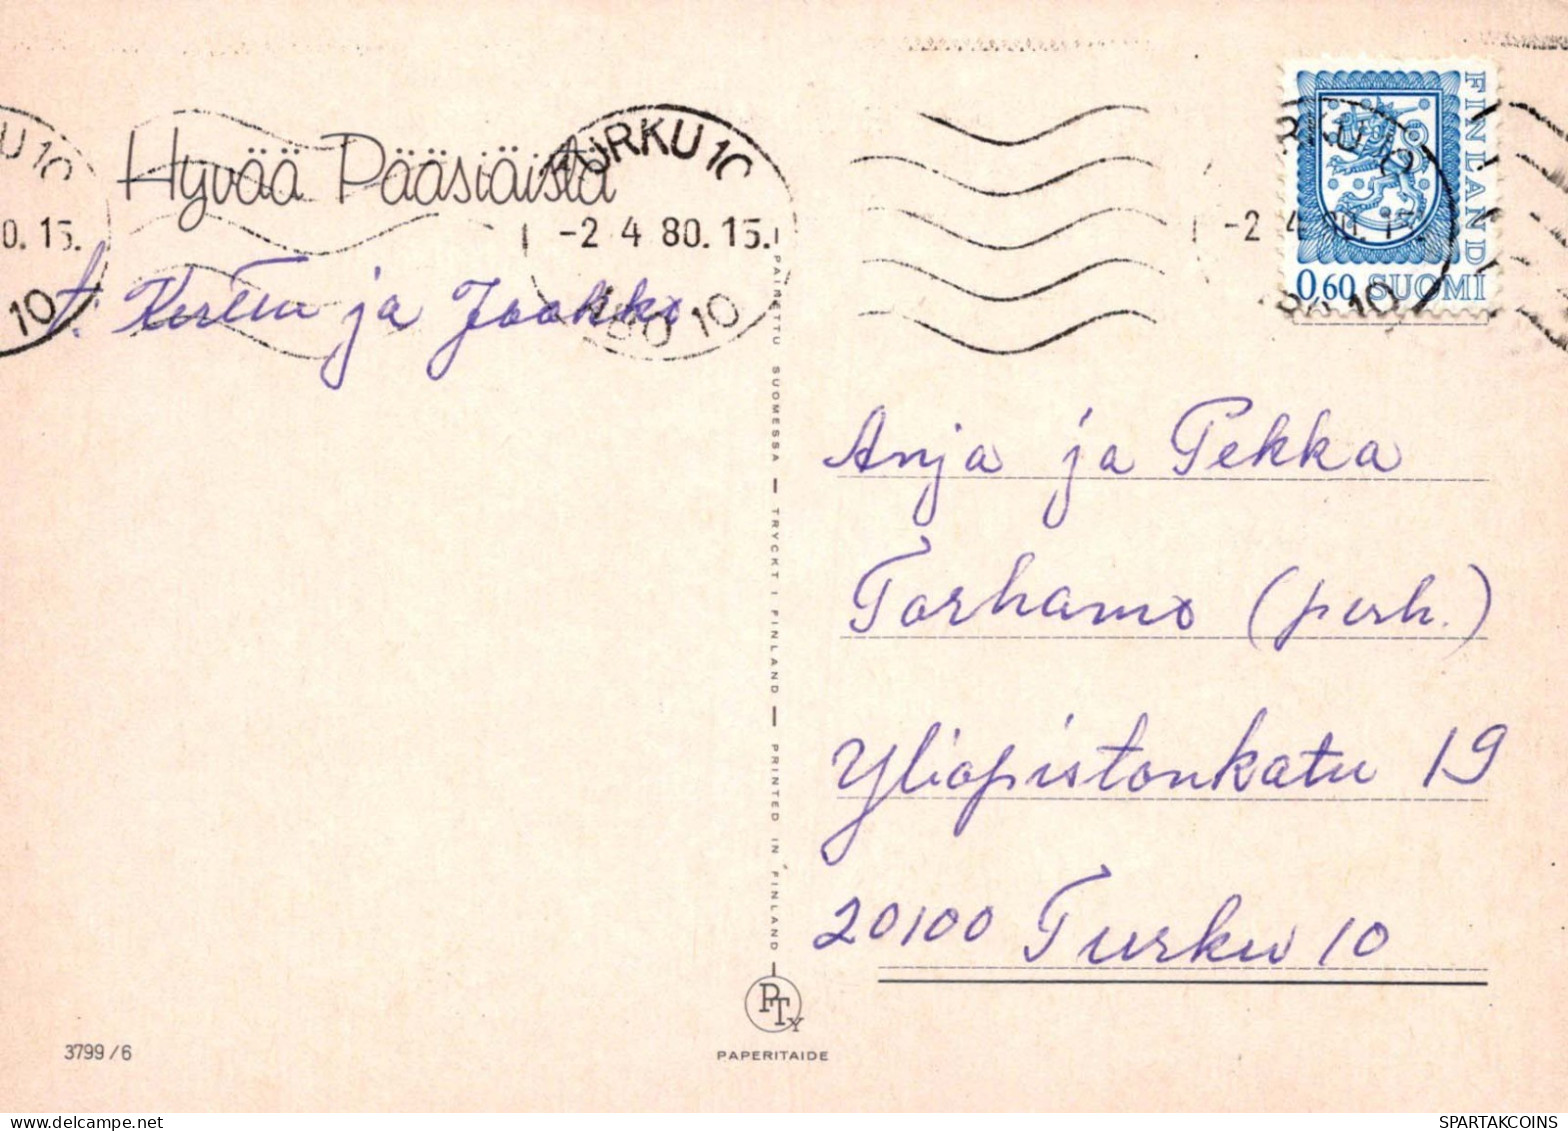 U 10
0. 15.
10
Hyvää Pääsiäistä
TURKU 10
-2 4 80. 15.
ÅBO 10
t. Kerttu ja Jaakko
FINLAND
0,60 SUOMI
RKU 10
-2 4 80. 15.
BO 10
Anja ja Pekka
Torhamo (perh.)
Yliopistonkatu 19
20100 Turku 10
PAINETTU SUOMESSA — TRYCKT I FINLAND — PRINTED IN FINLAND
PTY
PAPERITAIDE
3799/6
SPARTAKCOINS